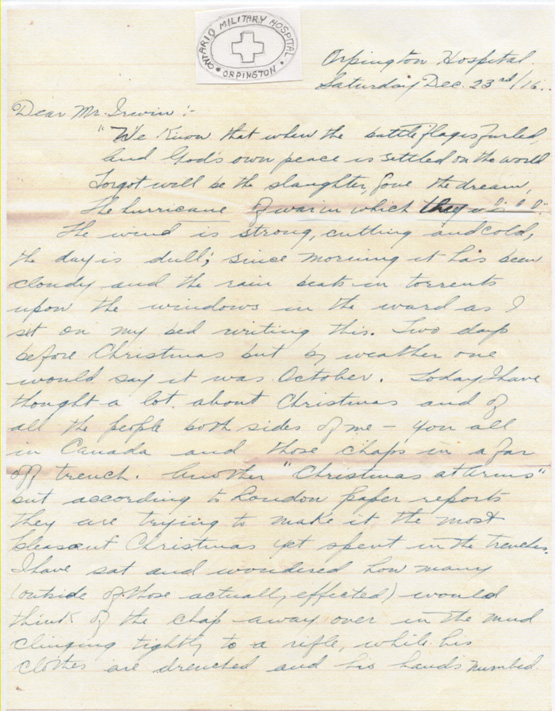 ONTARIO MILITARY HOSPITAL
• ORPINGTON •
Orpington Hospital.
Saturday Dec. 23rd/16..
Dear Mr. Irwin:-
"We know that when the battle flag is furled,
And God's own peace is settled on the world
Forgot will be the slaughter, gone the dream,
The hurricane of war in which they
The wind is strong, cutting and cold,
the day is dull; since morning it has been
cloudy and the rain beats in torrents
upon the windows in the ward as I
sit on my bed writing this. Two days
before Christmas but by weather one
would say it was October. Today I have
thought a lot about Christmas and of
all the people both sides of me – you all
in Canada and those chaps in a far
off trench. Another "Christmas at Arms"
but according to London paper reports
they are trying to make it the most
pleasent Christmas yet spent in the trenches.
I have sat and wondered how many
(outside of those actually effected) would
think of the chap away over in the mud
clinging tightly to a rifle, while his
clothes are drenched and his hands numbed